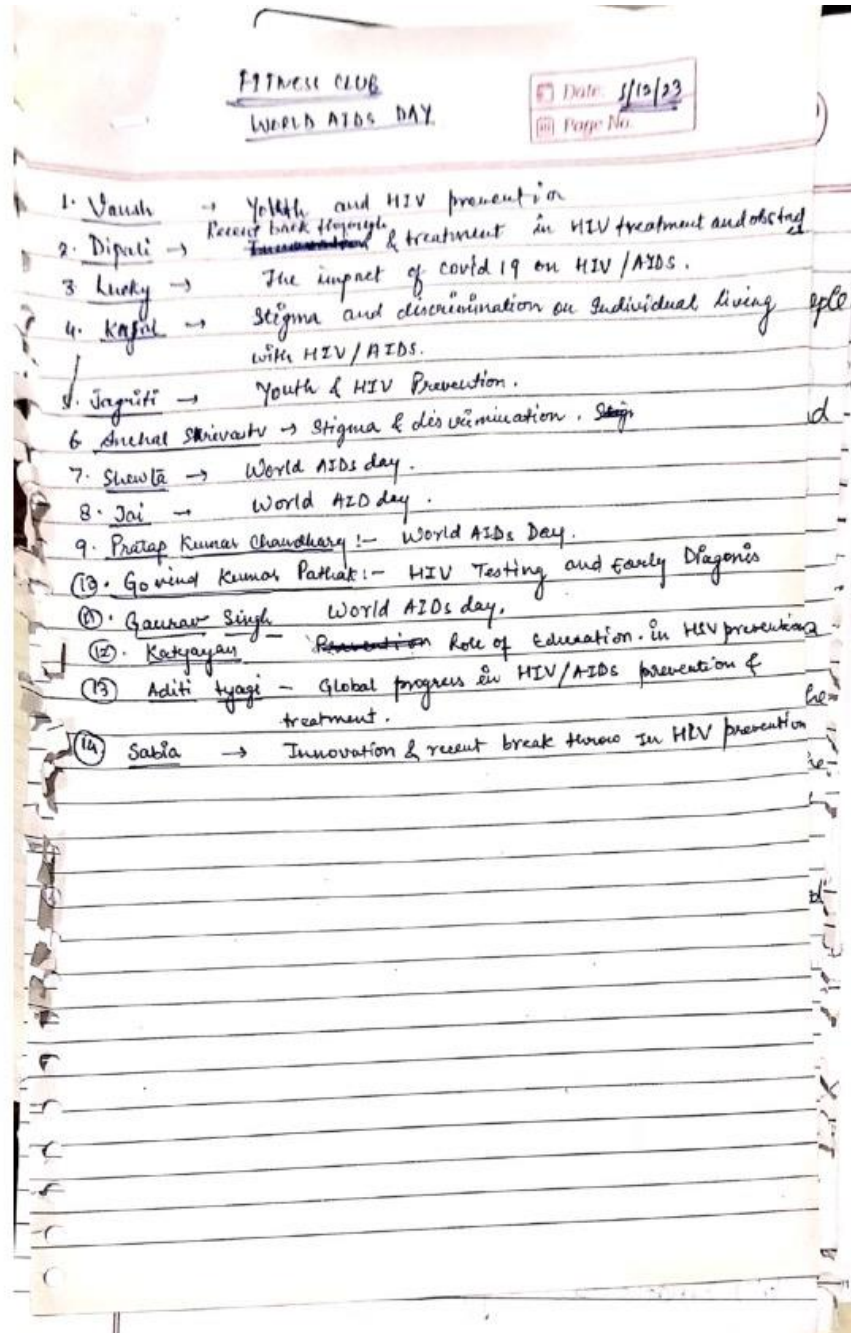 FITNESS CLUB
WORLD AIDS DAY
Date: 1/12/23
Page No.
1. Vansh → Youth and HIV prevention
Recent back through
2. Dipali → & treatment in HIV treatment and
3 Lucky → The impact of covid 19 on HIV/AIDS.
4. Kajal → Stigma and discrimination on Individual living
with HIV/AIDS.
5. Jagriti → Youth & HIV Prevention.
6 Anchal → Stigma & discrimination.
7. Shewta → World AIDs day.
8. Jai → World AID day.
9. Pratap Kumar Chaudhary :- World AIDs Day.
Govind Kumar Pathak :- HIV Testing and Early Diagonis
Gaurav Singh World AIDs day.
(12). Katyayan Role of Education. in HIV prevention
(13) Aditi tyagi - Global progress in HIV/AIDs prevention &
treatment.
(14) Sabia → Innovation & recent break throw In HIV prevention